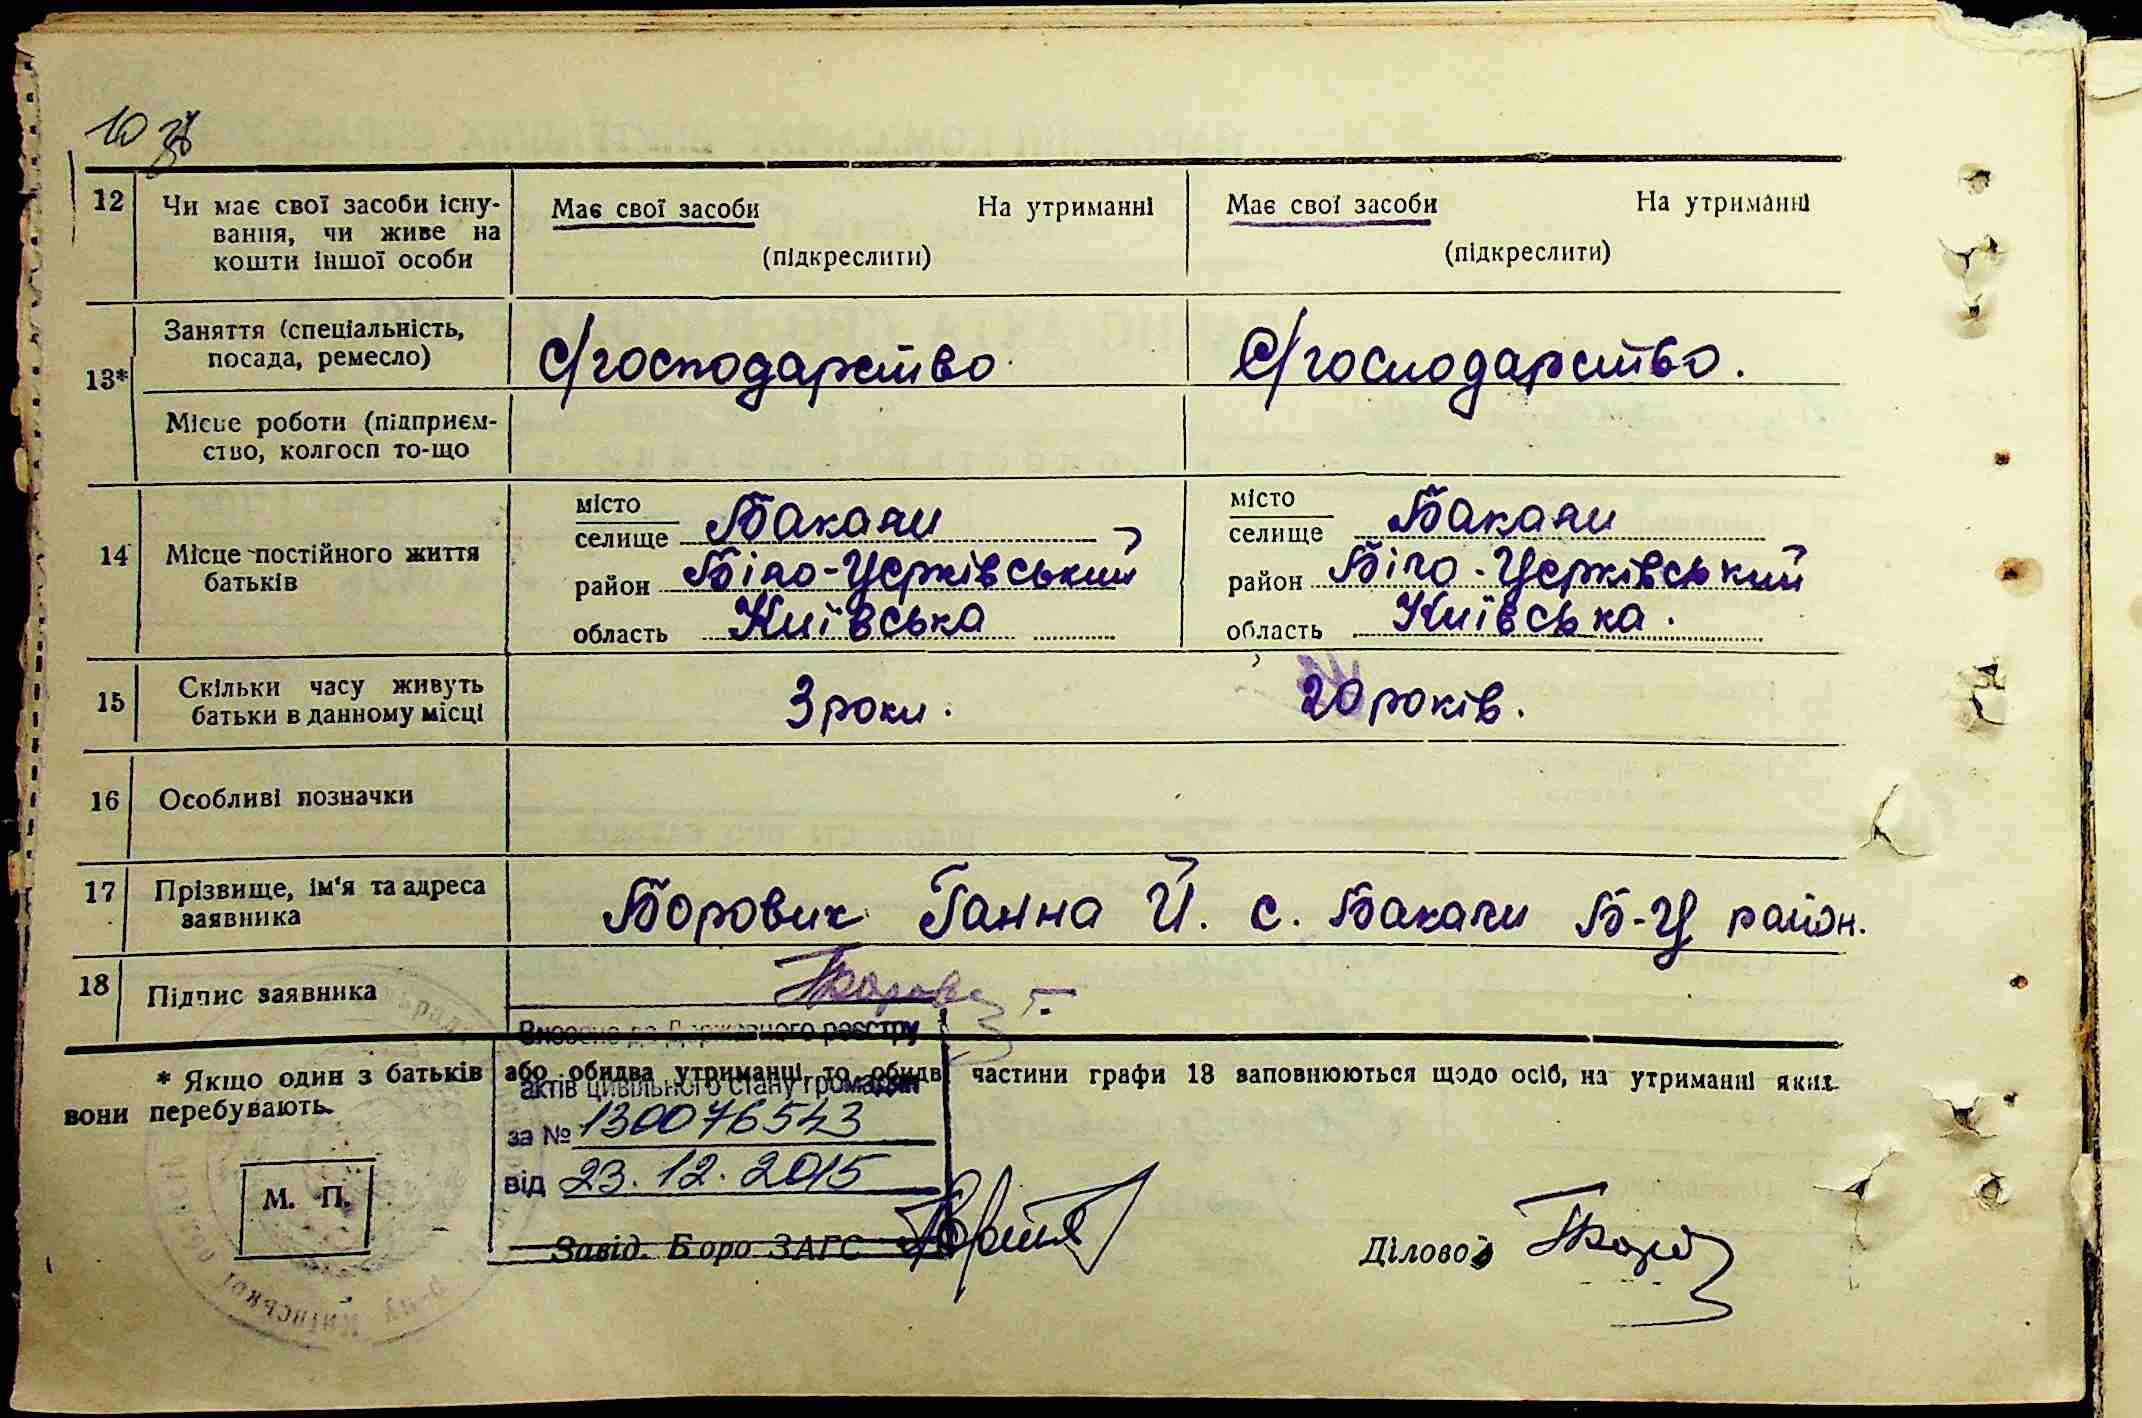 10
12 Чи має свої засоби існу-
вання, чи живе на
кошти іншої особи
Має свої засоби На утриманні
(підкреслити)
Має свої засоби На утриманні
(підкреслити)
13*
Заняття (спеціальність,
посада, ремесло)
с/господарство
с/господарство.
Місце роботи (підприєм-
ство, колгосп то-що
14 Місце постійного життя
батьків
місто
селище Бакали
район Біло-Церківський
область Київська
місто
селище Бакали
район Біло-Церківський
область Київська.
15 Скільки часу живуть
батьки в данному місці
3 роки.
20 років.
16 Особливі позначки
17 Прізвище, ім'я та адреса
заявника
Боровик Ганна Й. с. Бакали Б-Ц район.
18 Підпис заявника
* Якщо один з батьків або обидва утриманці то обидві частини графи 18 заповнюються щодо осіб, на утриманні яких
вони перебувають.
Внесено до Державного реєстру
актів цивільного стану громадян
за № 130076543
від 23.12.2015
М. П.
Завід. Бюро ЗАГС
Діловод